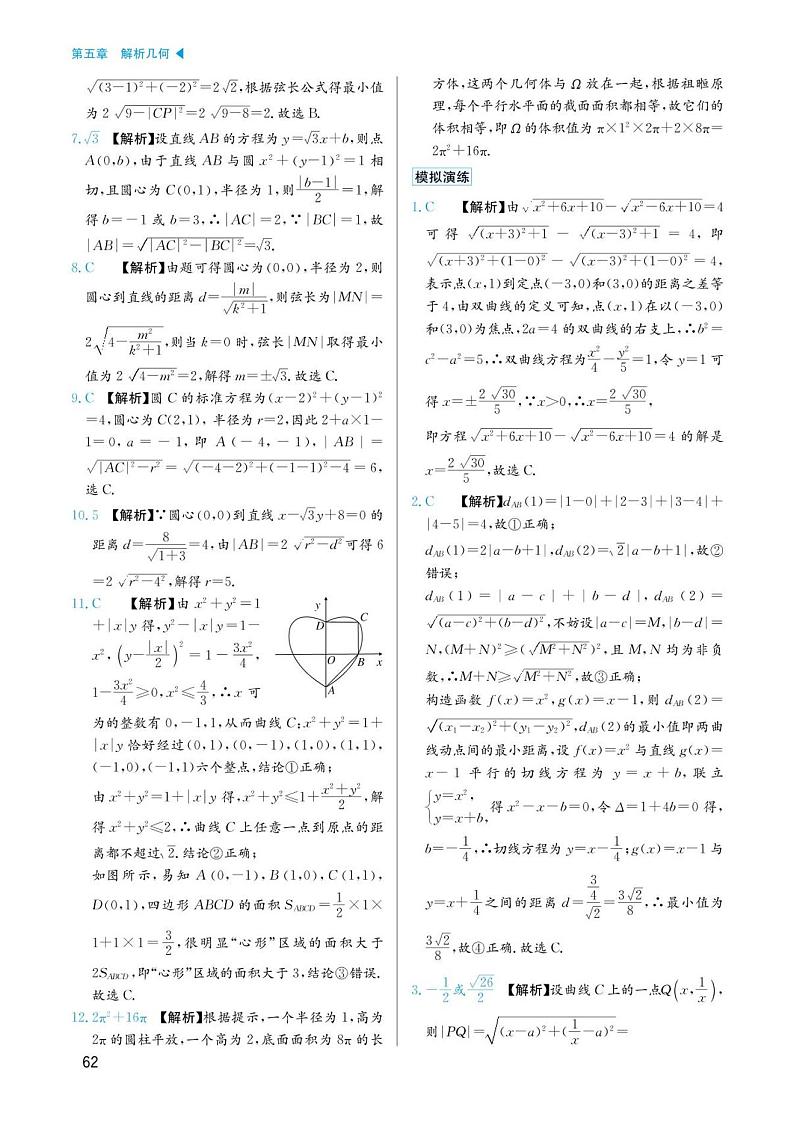 第五章　解析几何 ◀
√(3−1)²+(−2)²=2√2,根据弦长公式得最小值
为 2√9−|CP|²=2√9−8=2.故选 B.
7.√3 【解析】设直线 AB 的方程为 y=√3x+b,则点
A(0,b),由于直线 AB 与圆 x²+(y−1)²=1 相
切,且圆心为 C(0,1),半径为 1,则|b−1|/2=1,解
得 b=−1 或 b=3,∴|AC|=2,∵|BC|=1,故
|AB|=√|AC|²−|BC|²=√3.
8.C 【解析】由题可得圆心为(0,0),半径为 2,则
圆心到直线的距离 d=|m|/√k²+1,则弦长为|MN|=
2√4−m²/k²+1,则当 k=0 时,弦长|MN|取得最小
值为 2√4−m²=2,解得 m=±√3.故选 C.
9.C 【解析】圆 C 的标准方程为(x−2)²+(y−1)²
=4,圆心为 C(2,1),半径为 r=2,因此 2+a×1−
1=0,a=−1,即 A(−4,−1),|AB|=
√|AC|²−r²=√(−4−2)²+(−1−1)²−4=6,
选 C.
10.5 【解析】∵圆心(0,0)到直线 x−√3y+8=0 的
距离 d=8/√1+3=4,由|AB|=2√r²−d²可得 6
=2√r²−4²,解得 r=5.
11.C 【解析】由 x²+y²=1
+|x|y 得,y²−|x|y=1−
x²,(y−|x|/2)²=1−3x²/4,
1−3x²/4≥0,x²≤4/3,∴x 可
y
D
C
O
B
x
A
为的整数有 0,−1,1,从而曲线 C:x²+y²=1+
|x|y 恰好经过(0,1),(0,−1),(1,0),(1,1),
(−1,0),(−1,1)六个整点,结论①正确;
由 x²+y²=1+|x|y 得,x²+y²≤1+x²+y²/2,解
得 x²+y²≤2,∴曲线 C 上任意一点到原点的距
离都不超过√2.结论②正确;
如图所示,易知 A(0,−1),B(1,0),C(1,1),
D(0,1),四边形 ABCD 的面积 S_ABCD=1/2×1×
1+1×1=3/2,很明显“心形”区域的面积大于
2S_ABCD,即“心形”区域的面积大于 3,结论③错误.
故选 C.
12.2π²+16π 【解析】根据提示,一个半径为 1,高为
2π 的圆柱平放,一个高为 2,底面面积为 8π 的长
62
方体,这两个几何体与 Ω 放在一起,根据祖暅原
理,每个平行水平面的截面面积都相等,故它们的
体积相等,即 Ω 的体积值为 π×1²×2π+2×8π=
2π²+16π.
模拟演练
1.C 【解析】由√x²+6x+10−√x²−6x+10=4
可得 √(x+3)²+1 − √(x−3)²+1 = 4,即
√(x+3)²+(1−0)² − √(x−3)²+(1−0)² = 4,
表示点(x,1)到定点(−3,0)和(3,0)的距离之差等
于 4,由双曲线的定义可知,点(x,1)在以(−3,0)
和(3,0)为焦点,2a=4 的双曲线的右支上,∴b²=
c²−a²=5,∴双曲线方程为x²/4−y²/5=1,令 y=1 可
得 x=±2√30/5,∵x>0,∴x=2√30/5,
即方程√x²+6x+10−√x²−6x+10=4 的解是
x=2√30/5,故选 C.
2.C 【解析】d_AB(1)=|1−0|+|2−3|+|3−4|+
|4−5|=4,故①正确;
d_AB(1)=2|a−b+1|,d_AB(2)=√2|a−b+1|,故②
错误;
d_AB(1)=|a−c|+|b−d|,d_AB(2)=
√(a−c)²+(b−d)²,不妨设|a−c|=M,|b−d|=
N,(M+N)²≥(√M²+N²)²,且 M,N 均为非负
数,∴M+N≥√M²+N²,故③正确;
构造函数 f(x)=x²,g(x)=x−1,则 d_AB(2)=
√(x₁−x₂)²+(y₁−y₂)²,d_AB(2)的最小值即两曲
线动点间的最小距离,设 f(x)=x² 与直线 g(x)=
x−1 平行的切线方程为 y=x+b,联立
{y=x²,y=x+b,得 x²−x−b=0,令 Δ=1+4b=0 得,
b=−1/4,∴切线方程为 y=x−1/4;g(x)=x−1 与
y=x+1/4之间的距离 d=3/4/√2=3√2/8,∴最小值为
3√2/8,故④正确.故选 C.
3.−1/2或√26/2 【解析】设曲线 C 上的一点Q(x,1/x),
则|PQ|=√(x−a)²+(1/x−a)²=